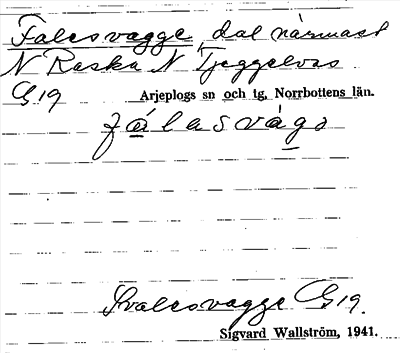 Falesvagge, dal närmast
N Raska N Tjeggelvas
G 19 Arjeplogs sn och tg, Norrbottens län.
fálasvágs
Svalesvagge G 19.
Sigvard Wallström, 1941.